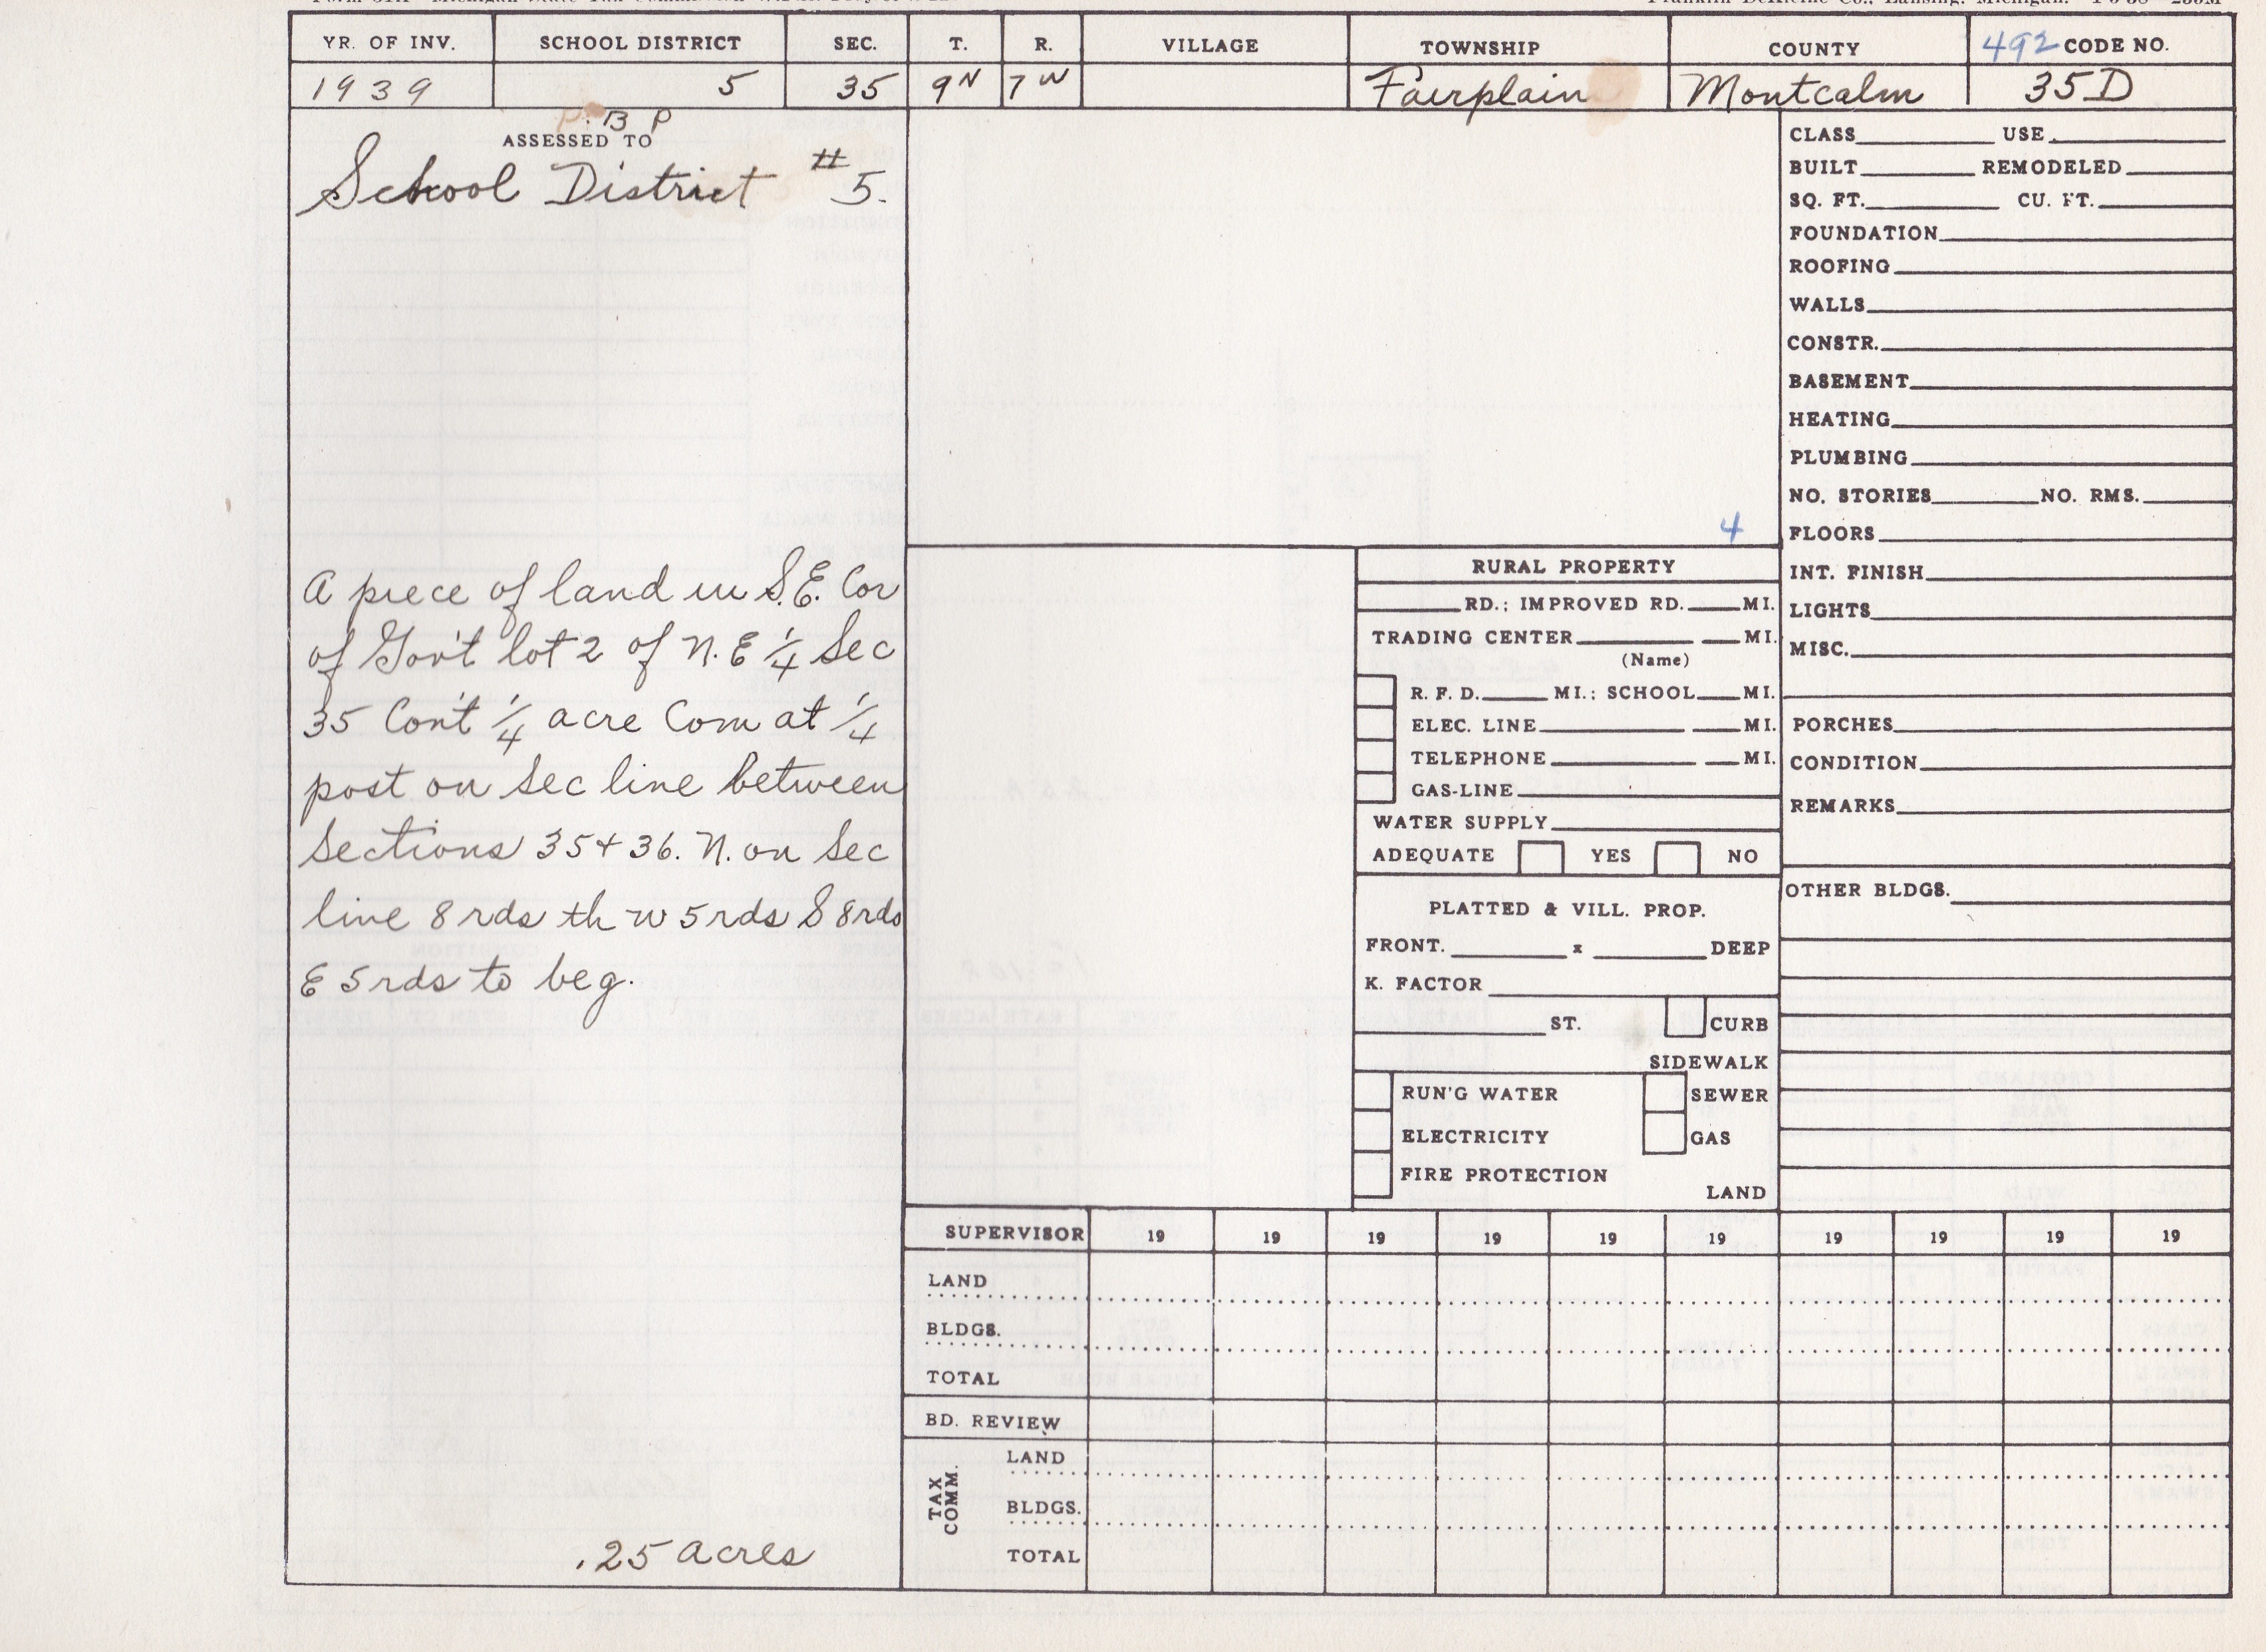 YR. OF INV. SCHOOL DISTRICT SEC. T. R. VILLAGE TOWNSHIP COUNTY 492 CODE NO.
1939 5 35 9N 7W Fairplain Montcalm 35D
P. B P
ASSESSED TO
School District #5.
A piece of land in S.E. Cor
of Gov't lot 2 of N.E 1/4 Sec
35 Con't 1/4 acre Com at 1/4
post on Sec line between
Sections 35 + 36. N. on Sec
line 8 rds th w 5 rds S 8 rds
E 5 rds to beg.
.25 acres
4
RURAL PROPERTY
RD.; IMPROVED RD. MI.
TRADING CENTER MI.
(Name)
R. F. D. MI.; SCHOOL MI.
ELEC. LINE MI.
TELEPHONE MI.
GAS-LINE
WATER SUPPLY
ADEQUATE YES NO
PLATTED & VILL. PROP.
FRONT. x DEEP
K. FACTOR
ST. CURB
SIDEWALK
RUN'G WATER SEWER
ELECTRICITY GAS
FIRE PROTECTION
LAND
CLASS USE
BUILT REMODELED
SQ. FT. CU. FT.
FOUNDATION
ROOFING
WALLS
CONSTR.
BASEMENT
HEATING
PLUMBING
NO. STORIES NO. RMS.
FLOORS
INT. FINISH
LIGHTS
MISC.
PORCHES
CONDITION
REMARKS
OTHER BLDGS.
SUPERVISOR 19 19 19 19 19 19 19 19 19 19
LAND
BLDGS.
TOTAL
BD. REVIEW
TAX COMM.
LAND
BLDGS.
TOTAL